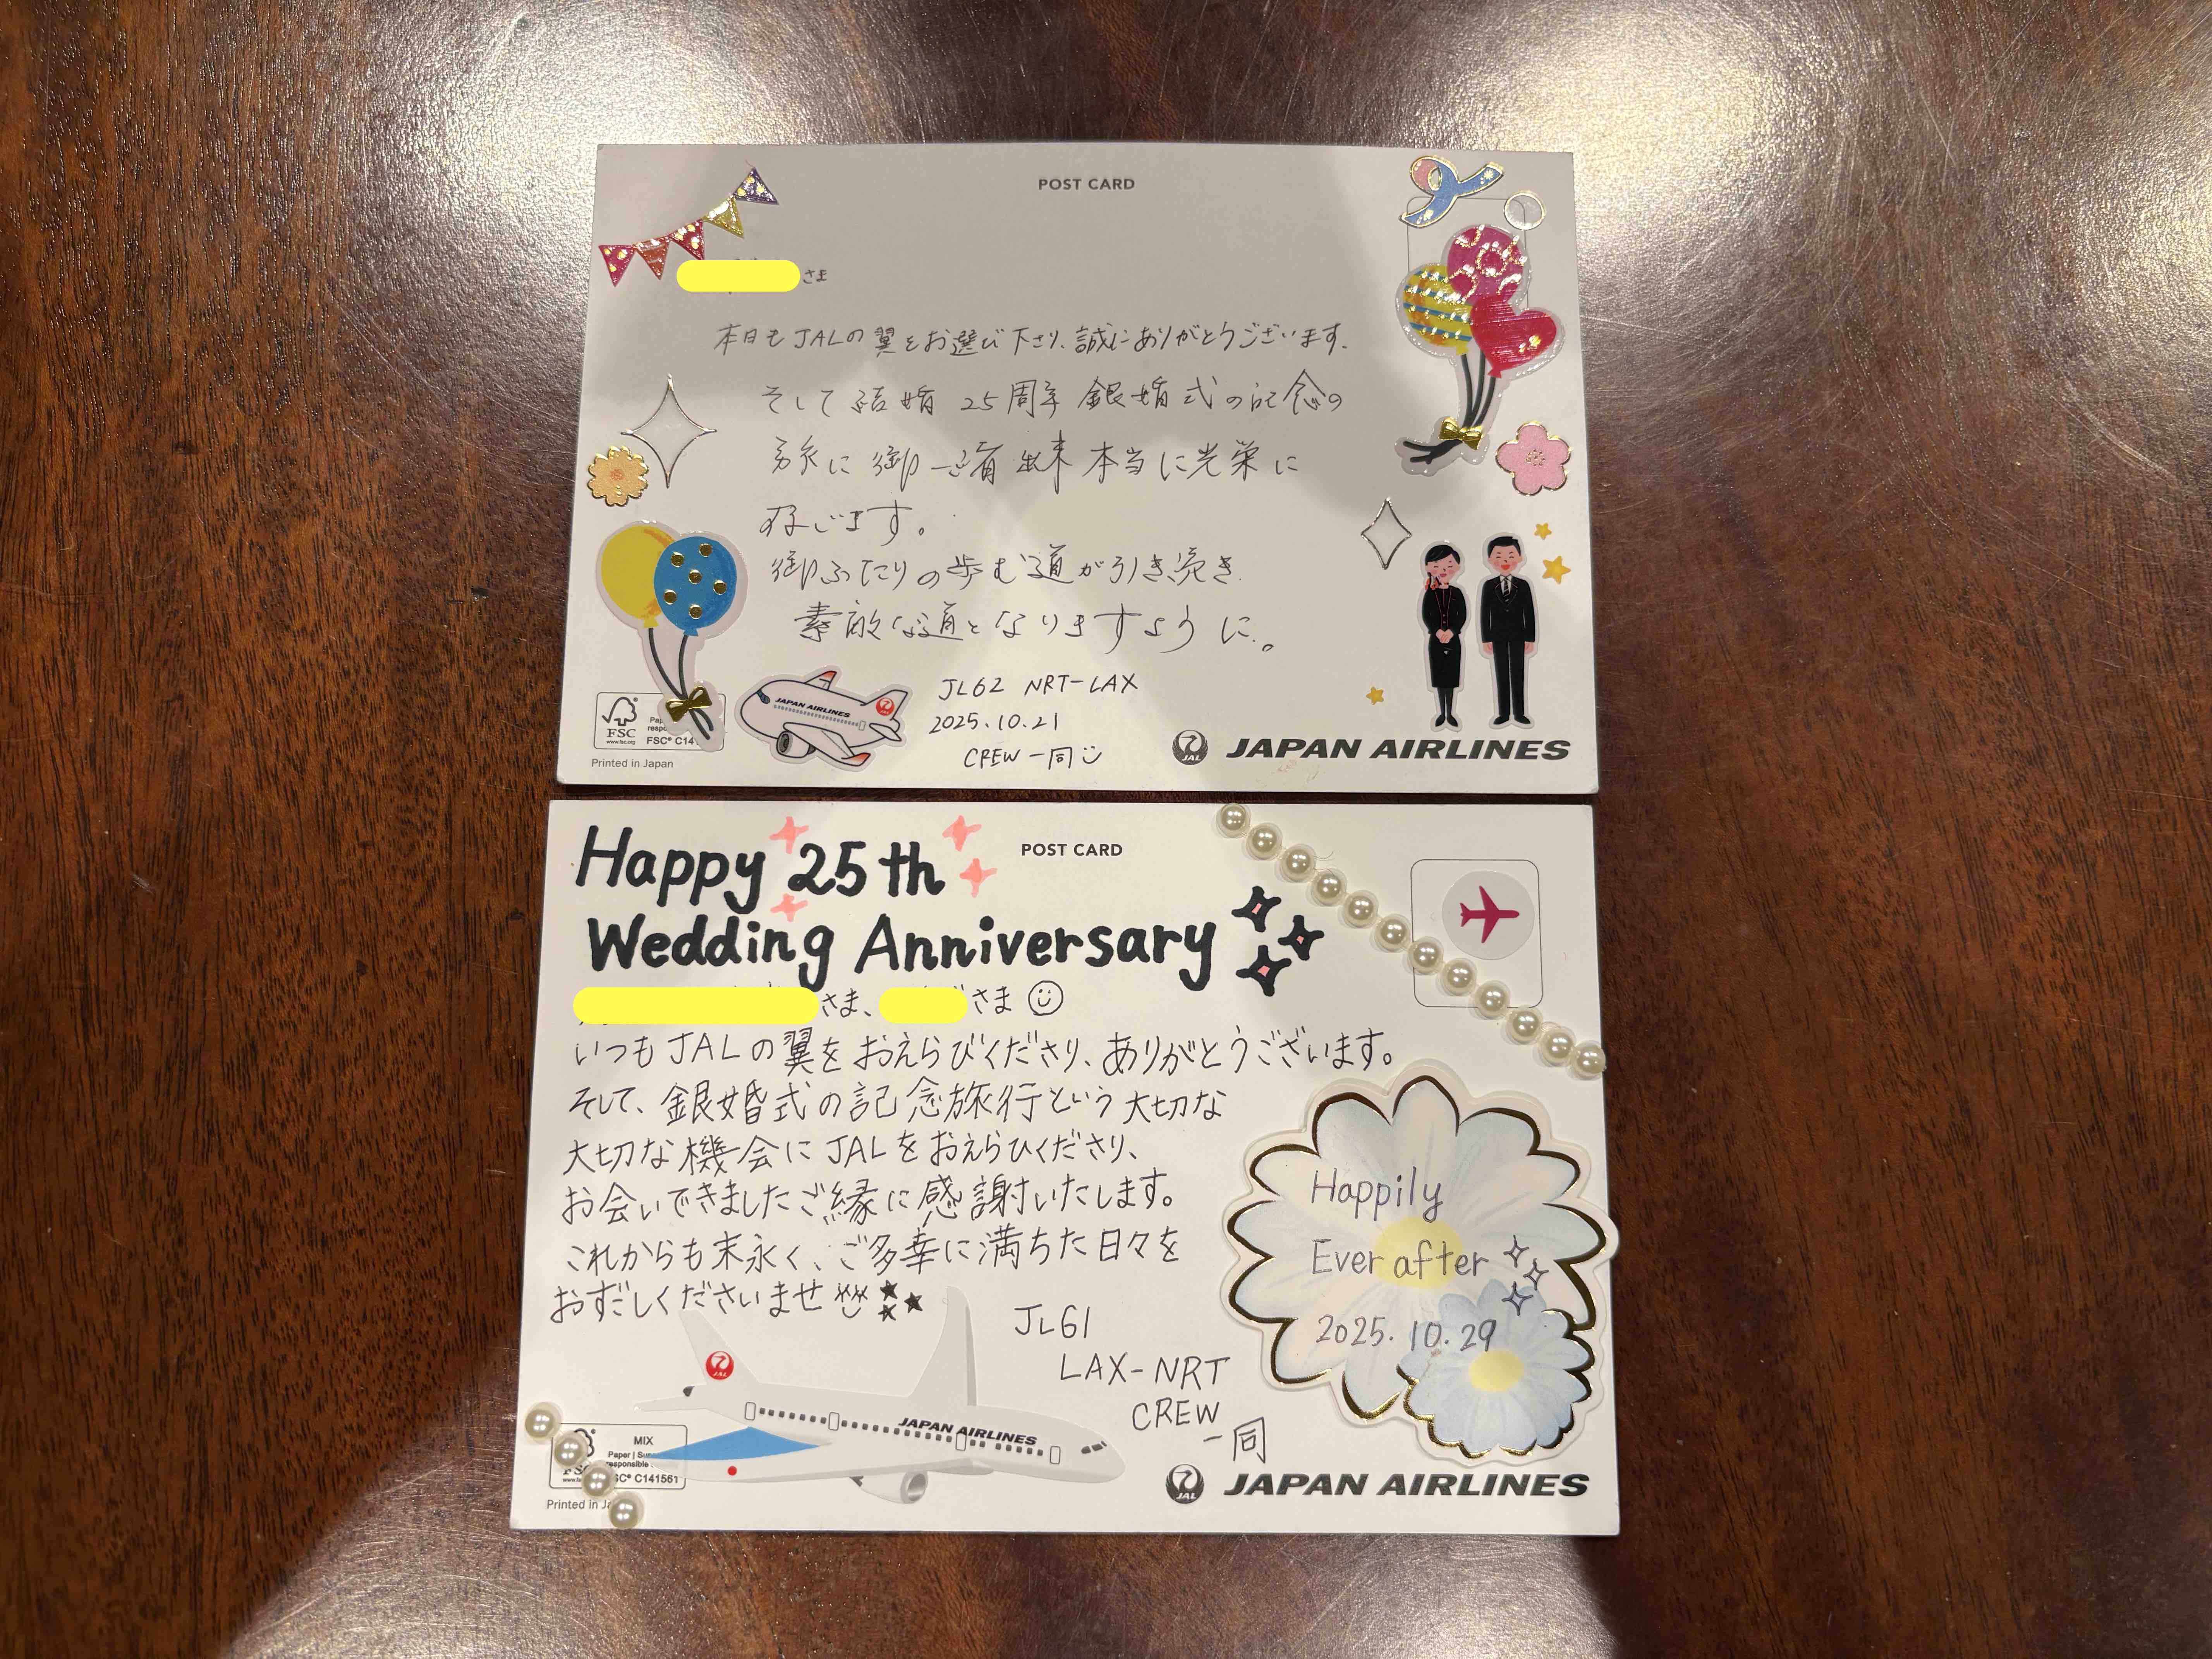 POST CARD
さま
本日もJALの翼をお選び下さり、誠にありがとうございます。
そして結婚25周年銀婚式の記念の
旅に御一緒出来本当に光栄に
存じます。
御ふたりの歩む道が引き続き
素敵な道となりますように。
JAPAN AIRLINES
JL62 NRT-LAX
2025.10.21
CREW一同
FSC
www.fsc.org
FSC® C14
Printed in Japan
JAL
JAPAN AIRLINES
Happy 25th
POST CARD
Wedding Anniversary
さま、さま
いつもJALの翼をおえらびくださり、ありがとうございます。
そして、銀婚式の記念旅行という大切な
大切な機会にJALをおえらびくださり、
お会いできましたご縁に感謝いたします。
これからも末永く、ご多幸に満ちた日々を
おすごしくださいませ
Happily
Ever after
2025.10.29
JL61
LAX-NRT
CREW
一同
JAL
JAPAN AIRLINES
MIX
Paper
responsible
C141561
Printed in
JAL
JAPAN AIRLINES